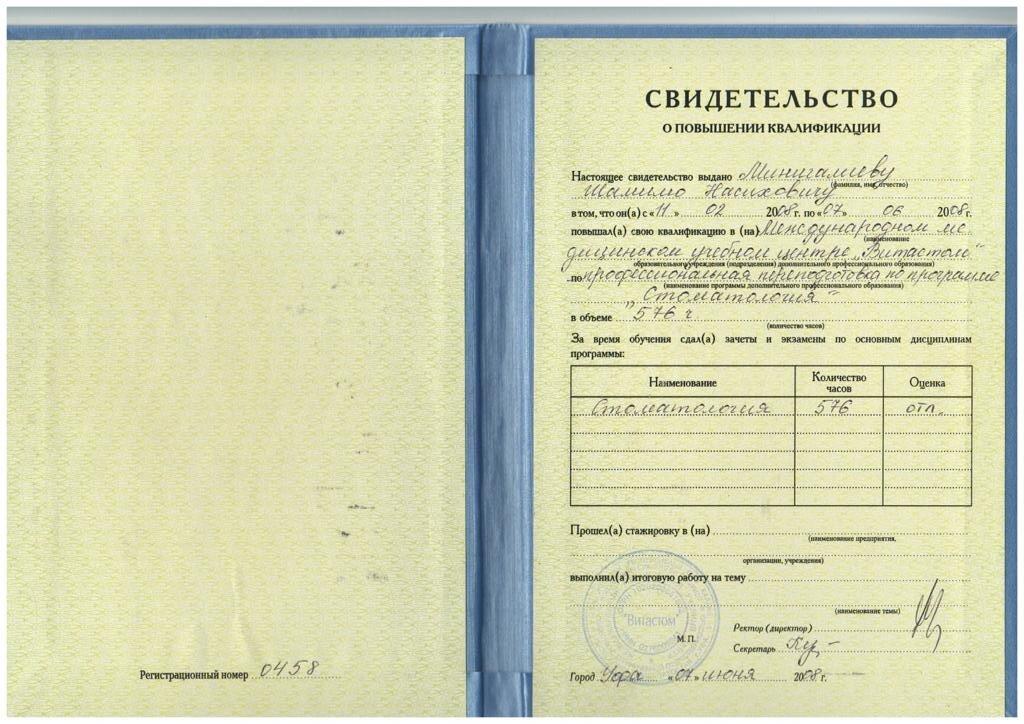 Регистрационный номер 0458
СВИДЕТЕЛЬСТВО
О ПОВЫШЕНИИ КВАЛИФИКАЦИИ
Настоящее свидетельство выдано Минигалиеву
(фамилия, имя, отчество)
Шамилю Насиховичу
в том, что он(а) с «11» 02 2008 г. по «07» 06 2008 г.
повышал(а) свою квалификацию в (на) Международном ме-
(наименование
дицинском учебном центре „Витастом"
образовательного учреждения (подразделения) дополнительного профессионального образования)
по профессиональная переподготовка по программе
(наименование программы дополнительного профессионального образования)
„Стоматология"
в объеме 576 ч
(количество часов)
За время обучения сдал(а) зачеты и экзамены по основным дисциплинам
программы:
Наименование Количество часов Оценка
Стоматология 576 отл.
Прошел(а) стажировку в (на)
(наименование предприятия,
организации, учреждения)
выполнил(а) итоговую работу на тему
(наименование темы)
"Витастом"
М.П.
Ректор (директор)
Секретарь
Город Уфа «07» июня 2008 г.